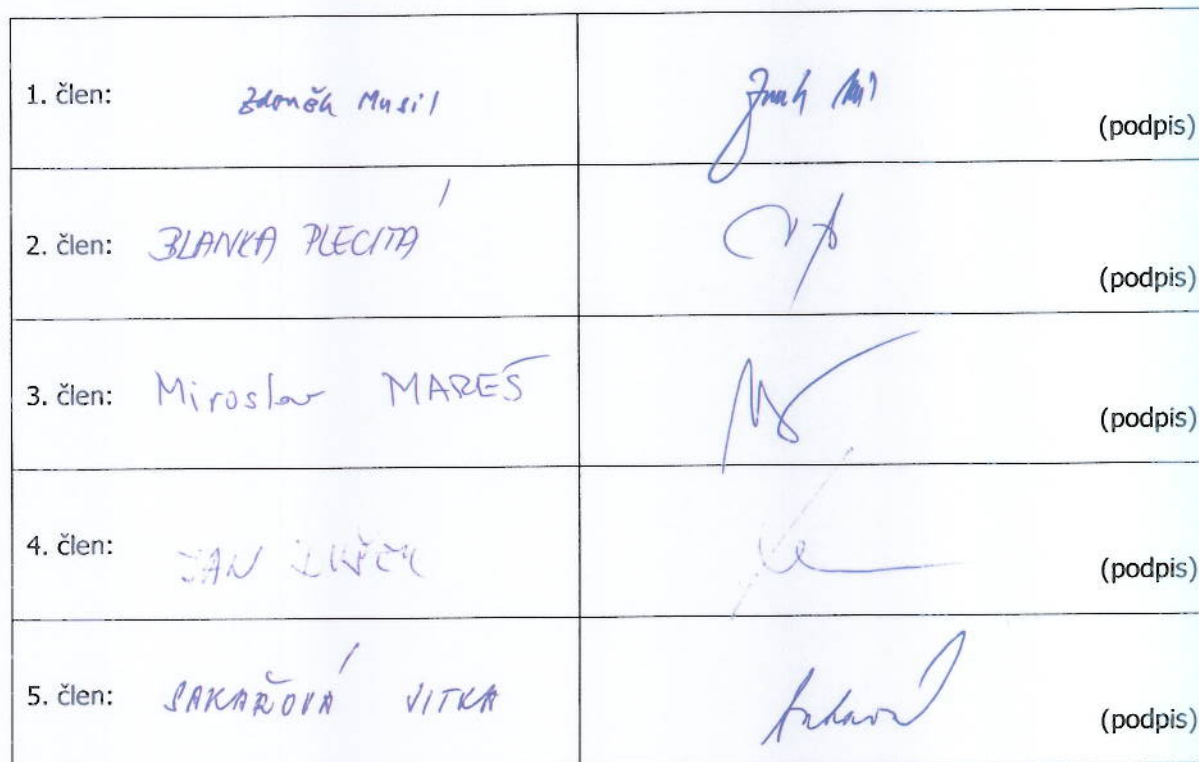 1. člen: Zdeněk Musil (podpis)
2. člen: BLANKA PLECITÁ (podpis)
3. člen: Miroslav MAREŠ (podpis)
4. člen: JAN (podpis)
5. člen: SAKAŘOVÁ VITKA (podpis)